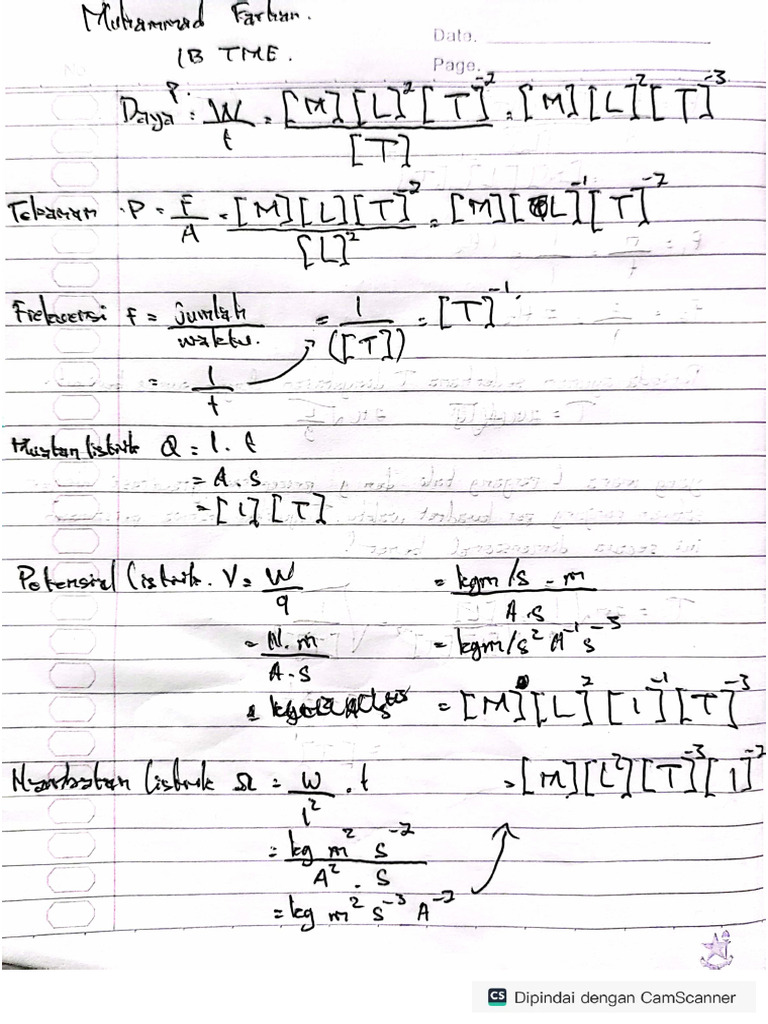 Muhammad Farhan.
1B TME.
Date.
Page.
No
Daya P. = W/t = [M][L]²[T]⁻²/[T] = [M][L]²[T]⁻³
Tekanan . P = F/A = [M][L][T]⁻²/[L]² = [M][L]⁻¹[T]⁻²
Frekuensi f = Jumlah/waktu. = 1/([T]) = [T]⁻¹
= 1/t
Muatan listrik Q = I . t
= A . s
= [I][T]
Potensial listrik . V = W/q = kgm/s - m/A.s
= N.m/A.s = kgm/s² A⁻¹ s⁻³
= [M][L]²[I]⁻¹[T]⁻³
Hambatan listrik Ω = W/I² . t = [M][L²][T]⁻³[I]⁻²
= kg m² s⁻²/A² . s
= kg m² s⁻³ A⁻²
CS Dipindai dengan CamScanner